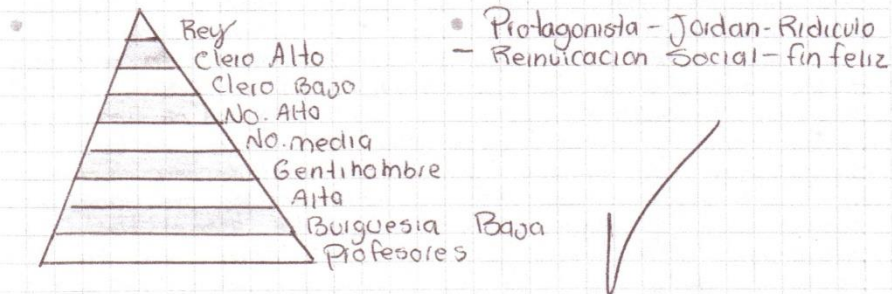 Rey
Clero Alto
Clero Bajo
No. Alto
No. media
Gentihombre
Alta
Burguesia Baja
Profesores
• Protagonista - Jordan - Ridiculo
- Reinuicacion Social - fin feliz